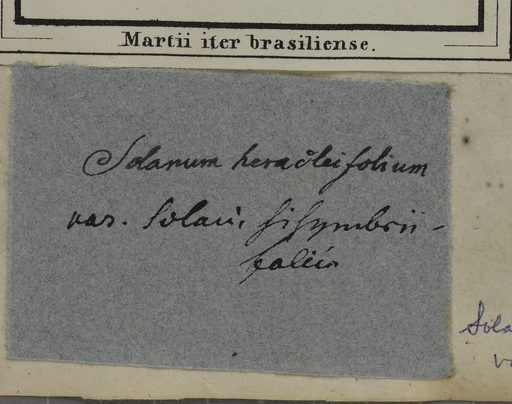 Martii iter brasiliense.
Solanum heracleifolium
var. Solani sisymbrii-
folii
Sola
va